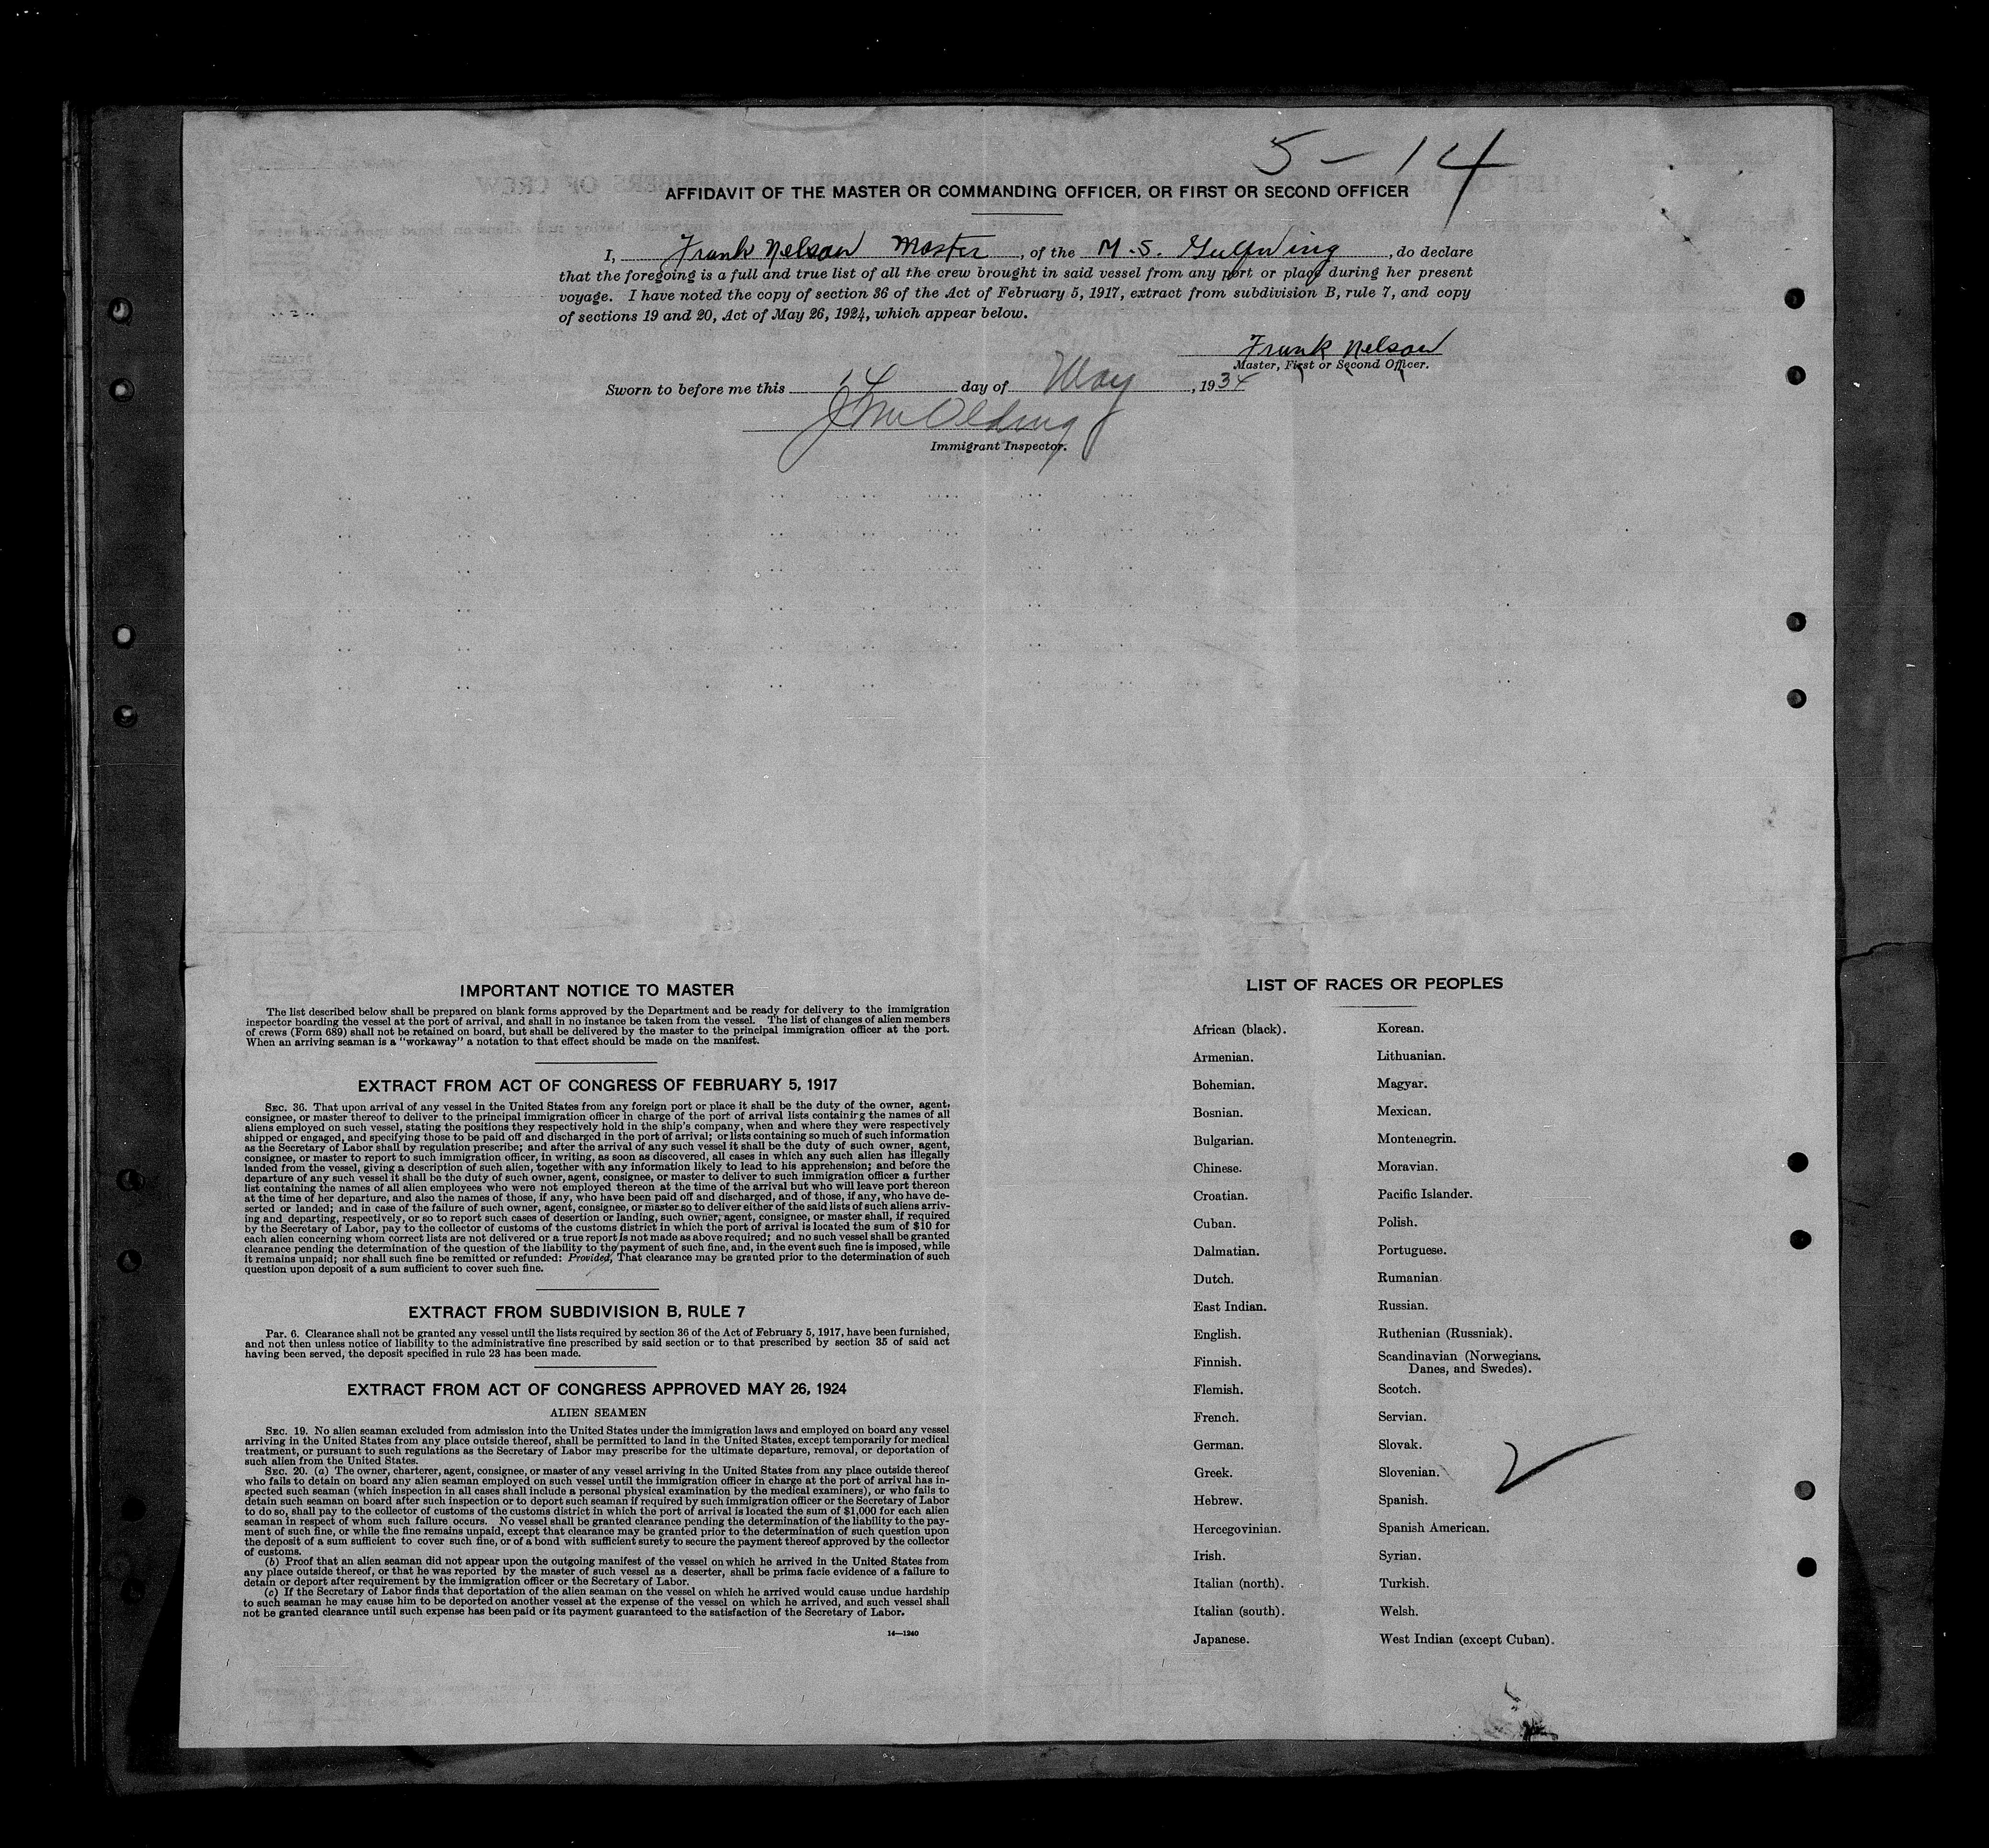 5-14
AFFIDAVIT OF THE MASTER OR COMMANDING OFFICER, OR FIRST OR SECOND OFFICER
I, Frank Nelson Master, of the M.S. Gulfwing, do declare
that the foregoing is a full and true list of all the crew brought in said vessel from any port or place during her present
voyage. I have noted the copy of section 36 of the Act of February 5, 1917, extract from subdivision B, rule 7, and copy
of sections 19 and 20, Act of May 26, 1924, which appear below.
Frank Nelson
Master, First or Second Officer.
Sworn to before me this 14 day of May, 1934
Immigrant Inspector.
IMPORTANT NOTICE TO MASTER
The list described below shall be prepared on blank forms approved by the Department and be ready for delivery to the immigration
inspector boarding the vessel at the port of arrival, and shall in no instance be taken from the vessel. The list of changes of alien members
of crews (Form 689) shall not be retained on board, but shall be delivered by the master to the principal immigration officer at the port.
When an arriving seaman is a "workaway" a notation to that effect should be made on the manifest.
EXTRACT FROM ACT OF CONGRESS OF FEBRUARY 5, 1917
SEC. 36. That upon arrival of any vessel in the United States from any foreign port or place it shall be the duty of the owner, agent,
consignee, or master thereof to deliver to the principal immigration officer in charge of the port of arrival lists containing the names of all
aliens employed on such vessel, stating the positions they respectively hold in the ship's company, when and where they were respectively
shipped or engaged, and specifying those to be paid off and discharged in the port of arrival; or lists containing so much of such information
as the Secretary of Labor shall by regulation prescribe; and after the arrival of any such vessel it shall be the duty of such owner, agent,
consignee, or master to report to such immigration officer, in writing, as soon as discovered, all cases in which any such alien has illegally
landed from the vessel, giving a description of such alien, together with any information likely to lead to his apprehension; and before the
departure of any such vessel it shall be the duty of such owner, agent, consignee, or master to deliver to such immigration officer a further
list containing the names of all alien employees who were not employed thereon at the time of the arrival but who will leave port thereon
at the time of her departure, and also the names of those, if any, who have been paid off and discharged, and of those, if any, who have de-
serted or landed; and in case of the failure of such owner, agent, consignee, or master so to deliver either of the said lists of such aliens arriv-
ing and departing, respectively, or so to report such cases of desertion or landing, such owner, agent, consignee, or master shall, if required
by the Secretary of Labor, pay to the collector of customs of the customs district in which the port of arrival is located the sum of $10 for
each alien concerning whom correct lists are not delivered or a true report is not made as above required; and no such vessel shall be granted
clearance pending the determination of the question of the liability to the payment of such fine, and, in the event such fine is imposed, while
it remains unpaid; nor shall such fine be remitted or refunded: Provided, That clearance may be granted prior to the determination of such
question upon deposit of a sum sufficient to cover such fine.
EXTRACT FROM SUBDIVISION B, RULE 7
Par. 6. Clearance shall not be granted any vessel until the lists required by section 36 of the Act of February 5, 1917, have been furnished,
and not then unless notice of liability to the administrative fine prescribed by said section or to that prescribed by section 35 of said act
having been served, the deposit specified in rule 23 has been made.
EXTRACT FROM ACT OF CONGRESS APPROVED MAY 26, 1924
ALIEN SEAMEN
SEC. 19. No alien seaman excluded from admission into the United States under the immigration laws and employed on board any vessel
arriving in the United States from any place outside thereof, shall be permitted to land in the United States, except temporarily for medical
treatment, or pursuant to such regulations as the Secretary of Labor may prescribe for the ultimate departure, removal, or deportation of
such alien from the United States.
SEC. 20. (a) The owner, charterer, agent, consignee, or master of any vessel arriving in the United States from any place outside thereof
who fails to detain on board any alien seaman employed on such vessel until the immigration officer in charge at the port of arrival has in-
spected such seaman (which inspection in all cases shall include a personal physical examination by the medical examiners), or who fails to
detain such seaman on board after such inspection or to deport such seaman if required by such immigration officer or the Secretary of Labor
to do so, shall pay to the collector of customs of the customs district in which the port of arrival is located the sum of $1,000 for each alien
seaman in respect of whom such failure occurs. No vessel shall be granted clearance pending the determination of the liability to the pay-
ment of such fine, or while the fine remains unpaid, except that clearance may be granted prior to the determination of such question upon
the deposit of a sum sufficient to cover such fine, or of a bond with sufficient surety to secure the payment thereof approved by the collector
of customs.
(b) Proof that an alien seaman did not appear upon the outgoing manifest of the vessel on which he arrived in the United States from
any place outside thereof, or that he was reported by the master of such vessel as a deserter, shall be prima facie evidence of a failure to
detain or deport after requirement by the immigration officer or the Secretary of Labor.
(c) If the Secretary of Labor finds that deportation of the alien seaman on the vessel on which he arrived would cause undue hardship
to such seaman he may cause him to be deported on another vessel at the expense of the vessel on which he arrived, and such vessel shall
not be granted clearance until such expense has been paid or its payment guaranteed to the satisfaction of the Secretary of Labor.
14—1240
LIST OF RACES OR PEOPLES
African (black).
Armenian.
Bohemian.
Bosnian.
Bulgarian.
Chinese.
Croatian.
Cuban.
Dalmatian.
Dutch.
East Indian.
English.
Finnish.
Flemish.
French.
German.
Greek.
Hebrew.
Hercegovinian.
Irish.
Italian (north).
Italian (south).
Japanese.
Korean.
Lithuanian.
Magyar.
Mexican.
Montenegrin.
Moravian.
Pacific Islander.
Polish.
Portuguese.
Rumanian.
Russian.
Ruthenian (Russniak).
Scandinavian (Norwegians,
Danes, and Swedes).
Scotch.
Servian.
Slovak.
Slovenian.
Spanish.
Spanish American.
Syrian.
Turkish.
Welsh.
West Indian (except Cuban).